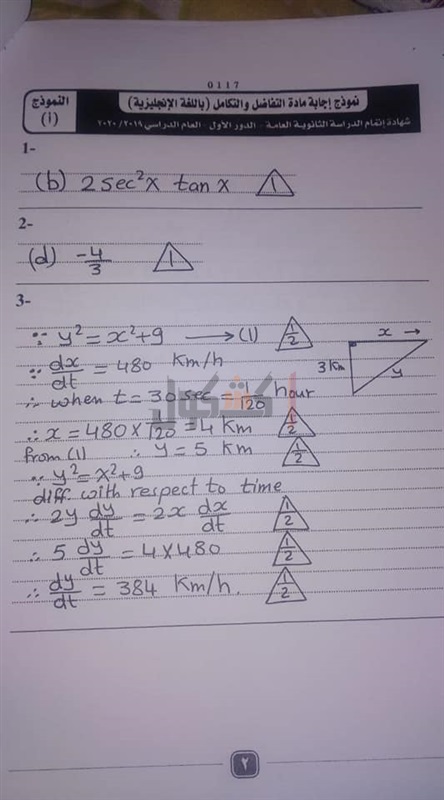 0117
نموذج إجابة مادة التفاضل والتكامل (باللغة الإنجليزية)
شهادة إتمام الدراسة الثانوية العامة - الدور الأول - العام الدراسي ٢٠١٩/٢٠٢٠
النموذج
(أ)
1-
(b) 2 sec²x tan x 1
2-
(d) -4/3 1
3-
∵ y² = x² + 9 ⟶ (1) 1/2
x →
3 Km
y
∵ dx/dt = 480 Km/h
∴ when t = 30 sec = 1/120 hour
∴ x = 480 × 1/120 = 4 Km 1/2
from (1) ∴ y = 5 Km 1/2
∵ y² = x² + 9
diff. with respect to time
∴ 2y dy/dt = 2x dx/dt 1/2
∴ 5 dy/dt = 4 × 480 1/2
∴ dy/dt = 384 Km/h. 1/2
٢